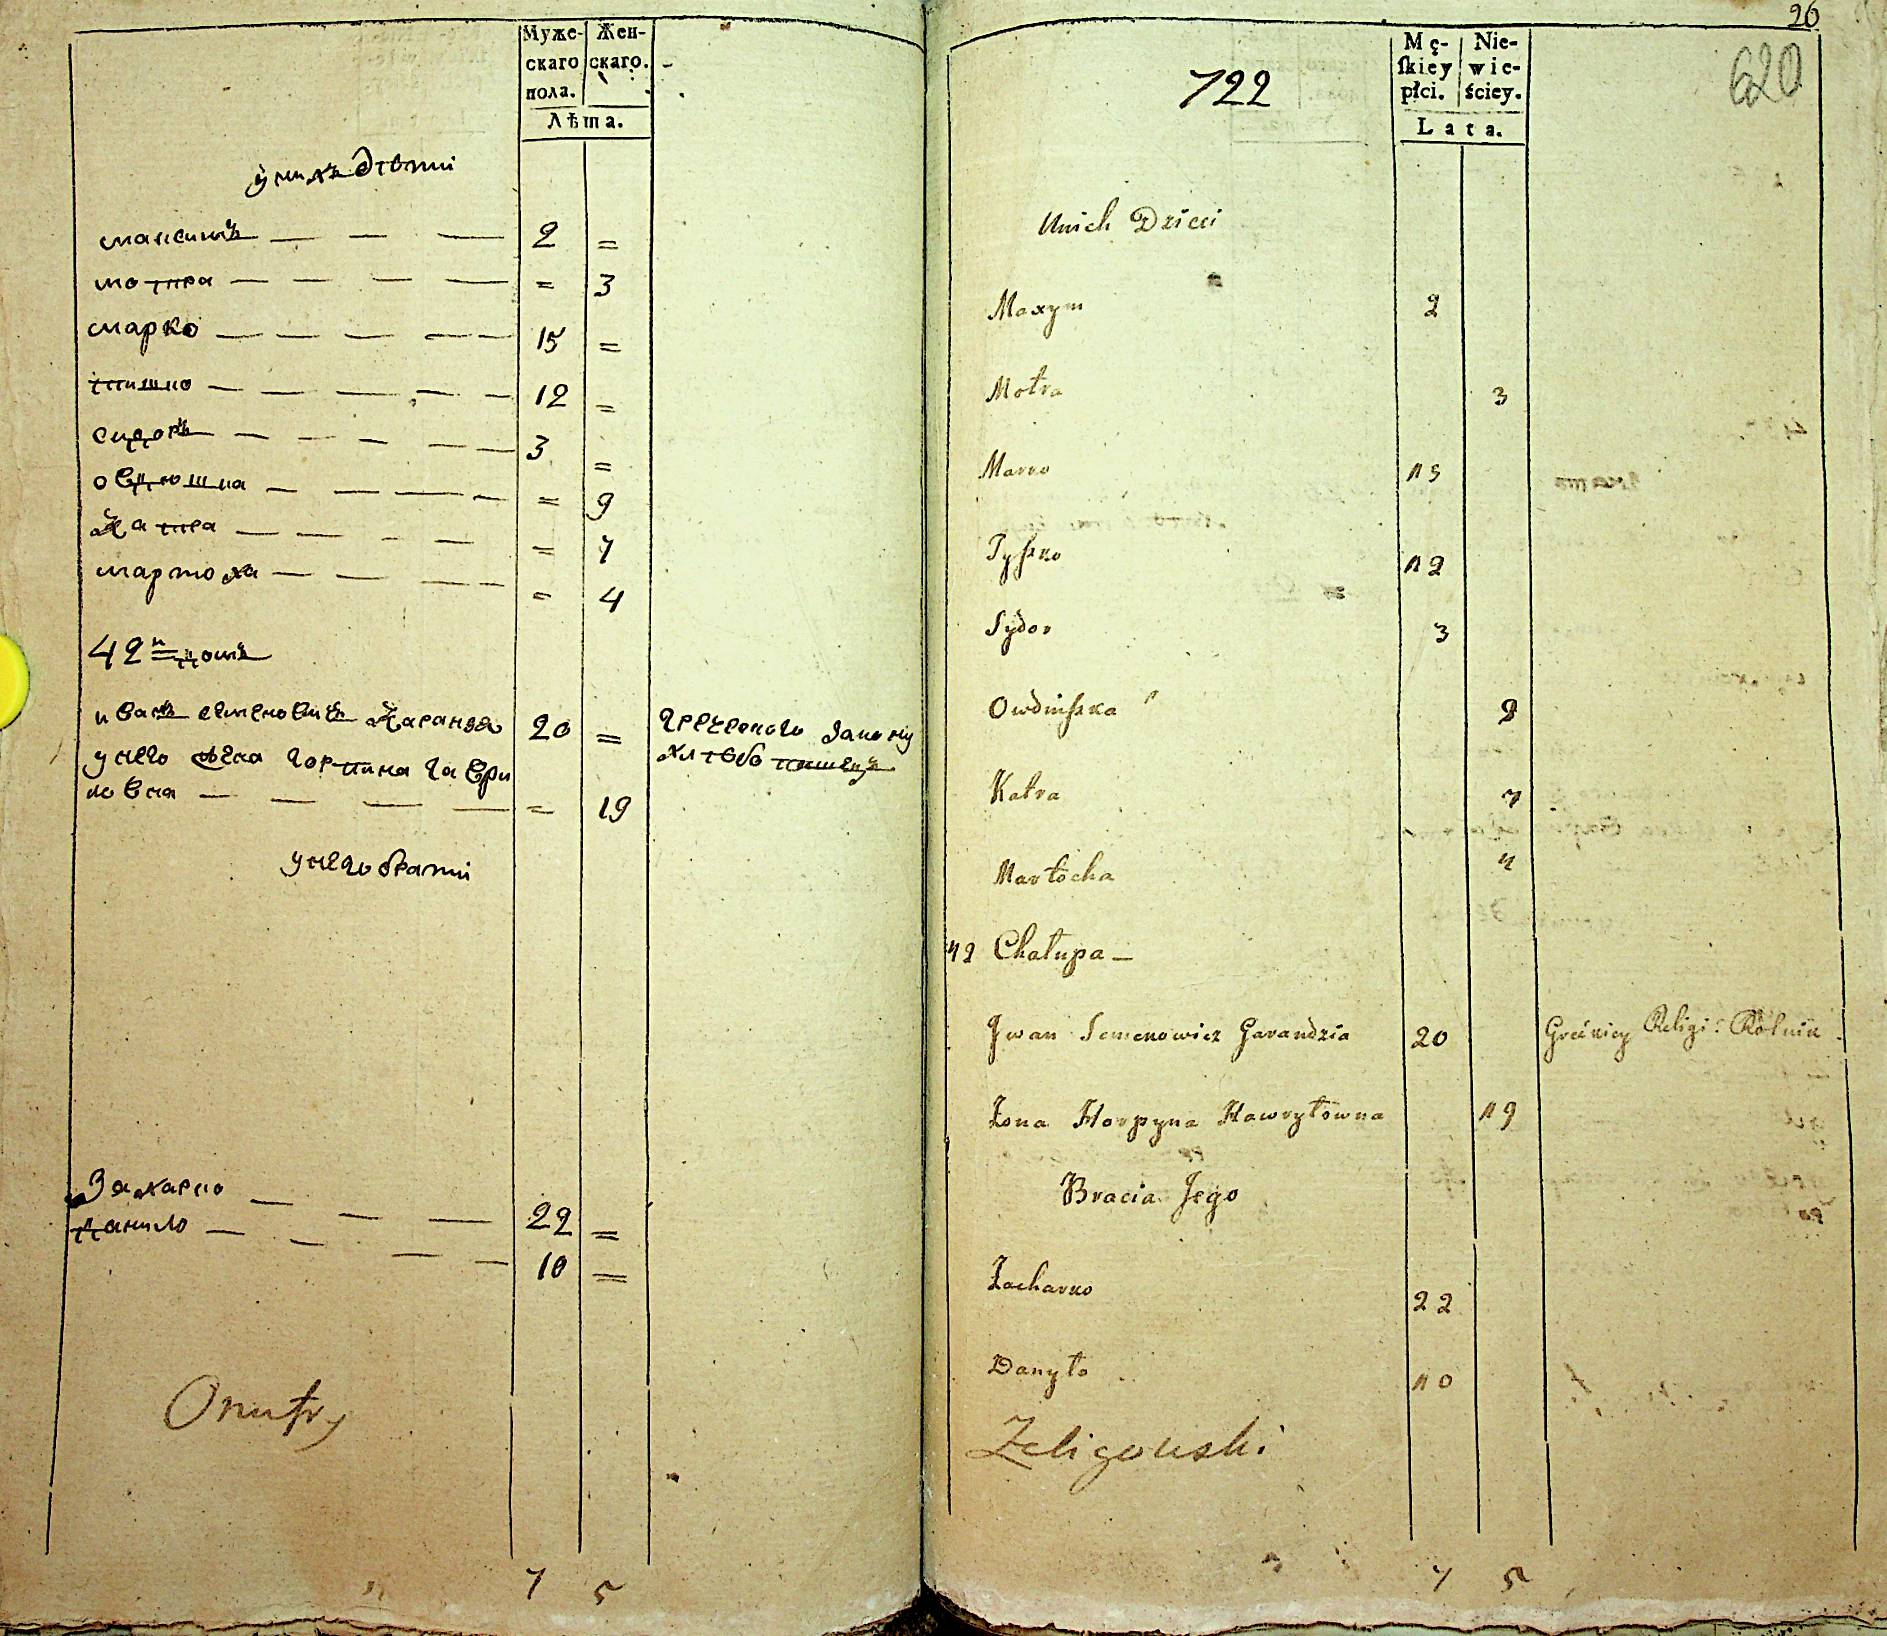 Муже- Жен-
скаго скаго.
пола.
Лѣта.
у нихъ дѣти
максимъ 2 =
мотра = 3
марко 15 =
тишко 12 =
сидоръ 3 =
овдюшка = 9
Катра = 7
мартоха = 4
42й домъ
иванъ семеновичъ Карандя 20 = греческого закону
у него жена горпина гаври хлѣбо пашецъ
ловна = 19
у него брати
Захарко 22 =
данило 10 =
Onufry
7 5
26
722
620
Mę- Nie-
ſkiey wie-
płci. ściey.
Lata.
Unich Dzieci
Maxym 2
Motra 3
Marko 15
Tyſzko 12
Sydor 3
Owdiuſzka 9
Katra 7
Martocha 4
42 Chałupa —
Jwan Semenowicz Garandzia 20 Religi: Rolnik
Żona Horpyna Hawryłowna 19
Bracia Jego
Zacharko 22
Danyło 10
Zeligowski
7 5